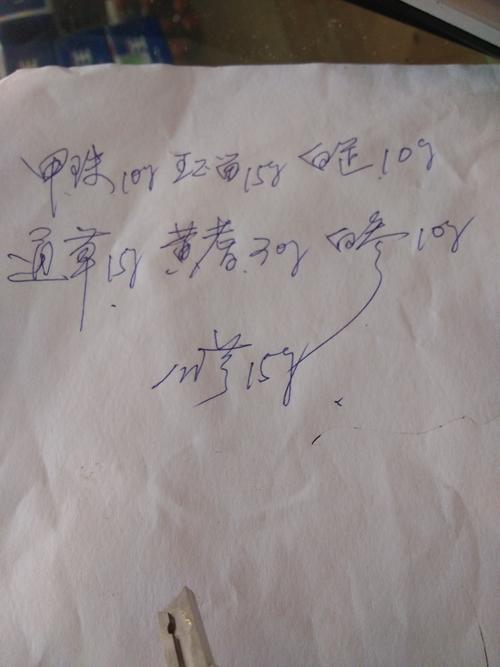 甲珠10g 王不留15g 白芷10g
通草15g 黄耆30g 白参10g
川芎15g